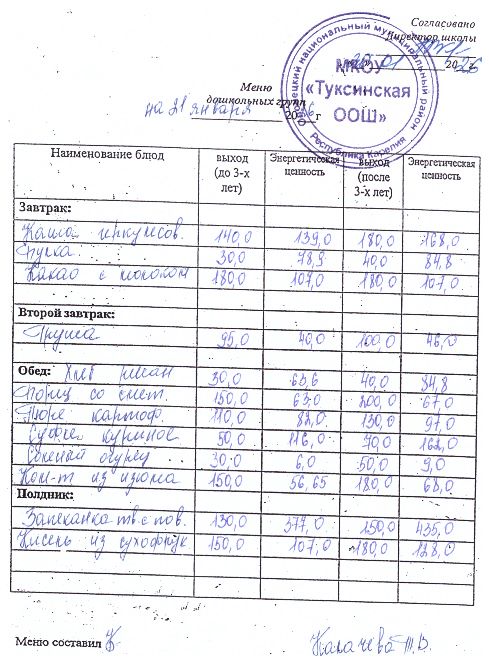 Согласовано
Директор школы
20 01 2026
Олонецкий национальный муниципальный район
МКОУ
«Туксинская
ООШ»
Республика Карелия
Меню
дошкольных групп
на 21 января 2026 г
Наименование блюд выход (до 3-х лет) Энергетическая ценность выход (после 3-х лет) Энергетическая ценность
Завтрак:
Каша геркулесов. 140,0 139,0 180,0 168,0
Булка 30,0 78,9 40,0 84,8
Какао с молоком 180,0 107,0 180,0 107,0
Второй завтрак:
Груша 95,0 40,0 100,0 46,0
Обед: Хлеб ржан 30,0 63,6 40,0 84,8
Борщ со смет. 150,0 63,0 200,0 67,0
Пюре картоф. 110,0 82,0 130,0 97,0
Суфле куриное 50,0 116,0 70,0 162,0
Соленый огурец 30,0 6,0 50,0 9,0
Ком-т из изюма 150,0 56,65 180,0 68,0
Полдник:
Запеканка тв с пов. 130,0 377,0 150,0 435,0
Кисель из сухофрук 150,0 107,0 180,0 128,0
Меню составил Калачева Т.В.